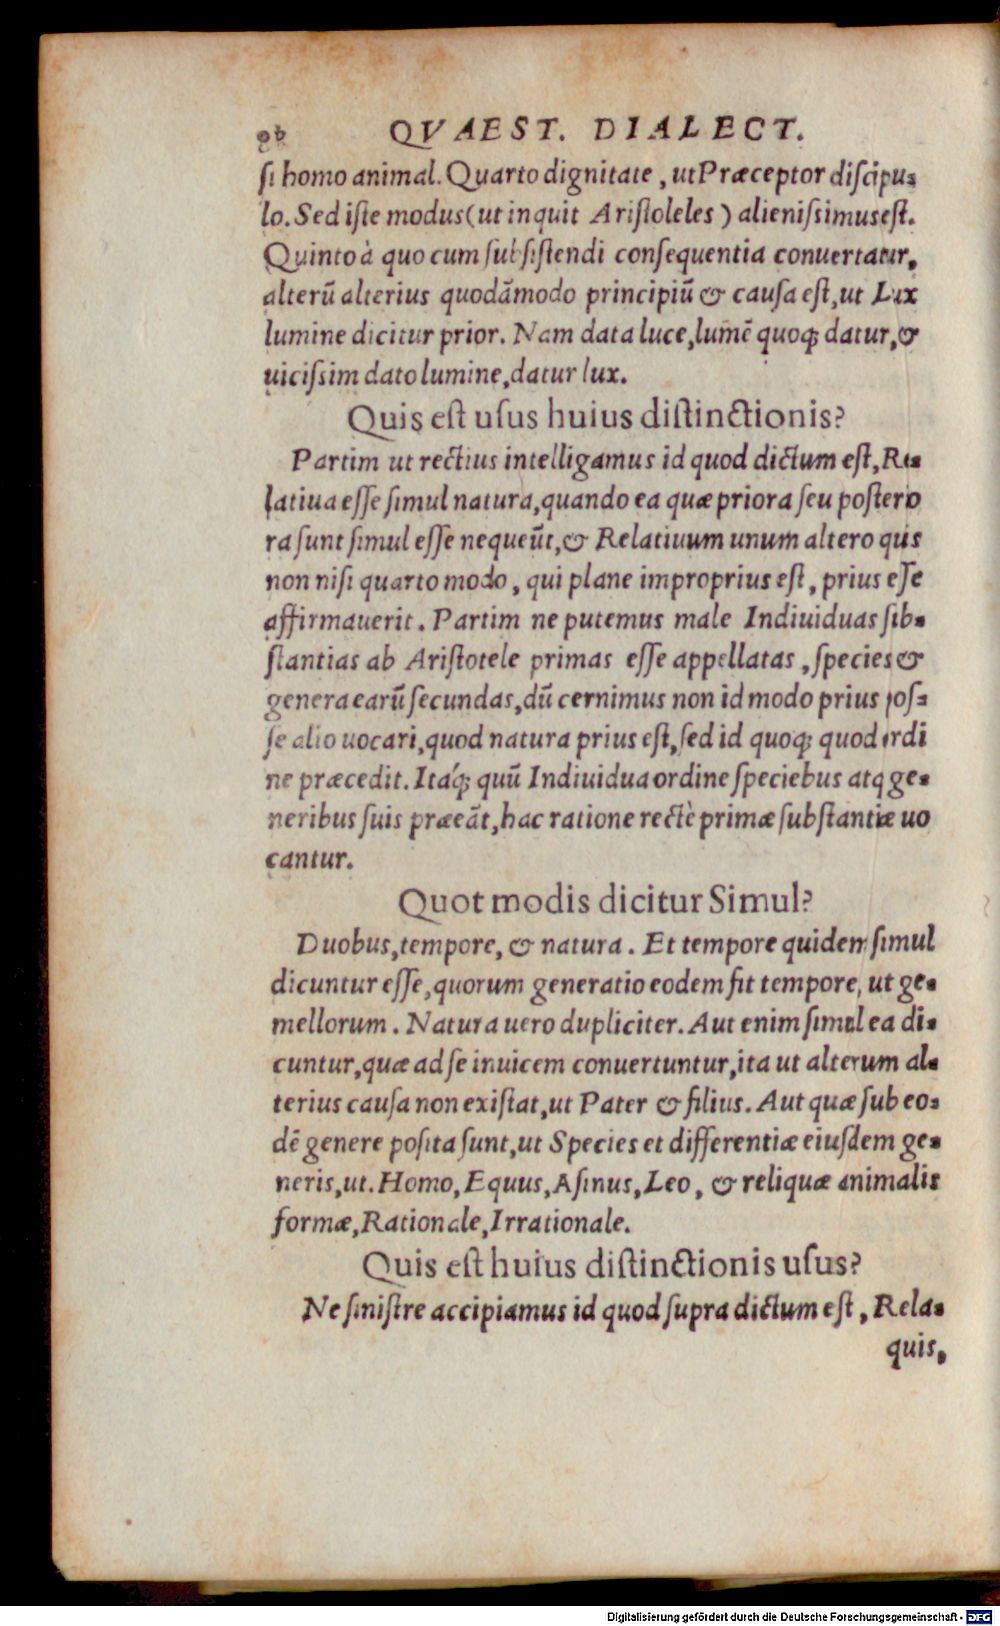 QVAEST. DIALECT.
ſi homo animal. Quarto dignitate, ut Præceptor diſcipu-
lo. Sed iſte modus (ut inquit Ariſtoleles) alieniſsimus eſt.
Quinto à quo cum ſubſiſtendi conſequentia conuertatur,
alterū alterius quodāmodo principiū & cauſa eſt, ut Lux
lumine dicitur prior. Nam data luce, lumē quoq; datur, &
uiciſsim dato lumine, datur lux.
Quis eſt uſus huius diſtinctionis?
Partim ut rectius intelligamus id quod dictum eſt, Re-
latiua eſſe ſimul natura, quando ea quæ priora ſeu poſterio
ra ſunt ſimul eſſe nequeūt, & Relatiuum unum altero quis
non niſi quarto modo, qui plane improprius eſt, prius eſſe
affirmauerit. Partim ne putemus male Indiuiduas ſub-
ſtantias ab Ariſtotele primas eſſe appellatas, ſpecies &
genera earū ſecundas, dū cernimus non id modo prius poſ-
ſe alio uocari, quod natura prius eſt, ſed id quoq; quod ordi
ne præcedit. Itáq; quū Indiuidua ordine ſpeciebus atq ge-
neribus ſuis præeāt, hac ratione rectè primæ ſubſtantiæ uo
cantur.
Quot modis dicitur Simul?
Duobus, tempore, & natura. Et tempore quidem ſimul
dicuntur eſſe, quorum generatio eodem fit tempore, ut ge-
mellorum. Natura uero dupliciter. Aut enim ſimul ea di-
cuntur, quæ ad ſe inuicem conuertuntur, ita ut alterum al-
terius cauſa non exiſtat, ut Pater & filius. Aut quæ ſub eo-
dē genere poſita ſunt, ut Species et differentiæ eiuſdem ge-
neris, ut. Homo, Equus, Aſinus, Leo, & reliquæ animalis
formæ, Rationale, Irrationale.
Quis eſt huius diſtinctionis uſus?
Ne ſiniſtre accipiamus id quod ſupra dictum eſt, Rela-
quis,
Digitalisierung gefördert durch die Deutsche Forschungsgemeinschaft - DFG